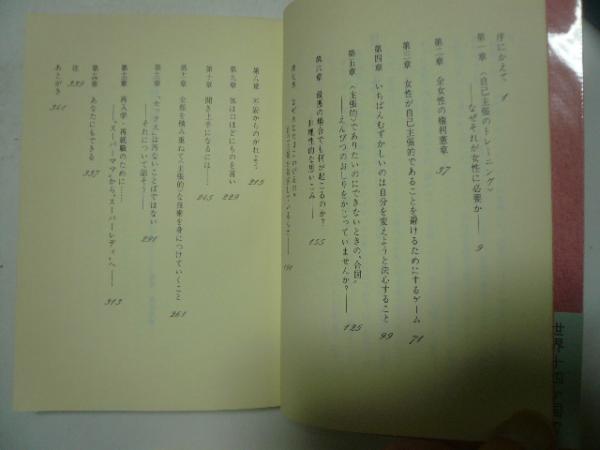 序にかえて 1
第一章 〈自己主張のトレーニング〉
──なぜそれが女性に必要か── 9
第二章 全女性の権利憲章 37
第三章 女性が自己主張的であることを避けるためにするゲーム 71
第四章 いちばんむずかしいのは自分を変えようと決心すること 99
第五章 〈主張的〉でありたいのにできないときの、合図
──えんぴつのおしりをかじっていませんか?── 125
第六章 最悪の場合でも何が起こるのか?
──非理性的な思いこみ── 155
第七章
191
第八章 不安からのがれよう 215
第九章 体は口ほどにものを言い 229
第十章 聞き上手になるには…… 245
第十一章 全部を積み重ねて〈主張的〉な技術を身につけていくこと 261
第十二章 〝セックス〟は汚ないことばではない
──それについて話そう── 291
第十三章 再入学・再就職のために……
──〝スーパーママ〟から〝スーパーレディ〟へ── 313
第十四章 あなたにもできる 337
注 339
あとがき 341
世界